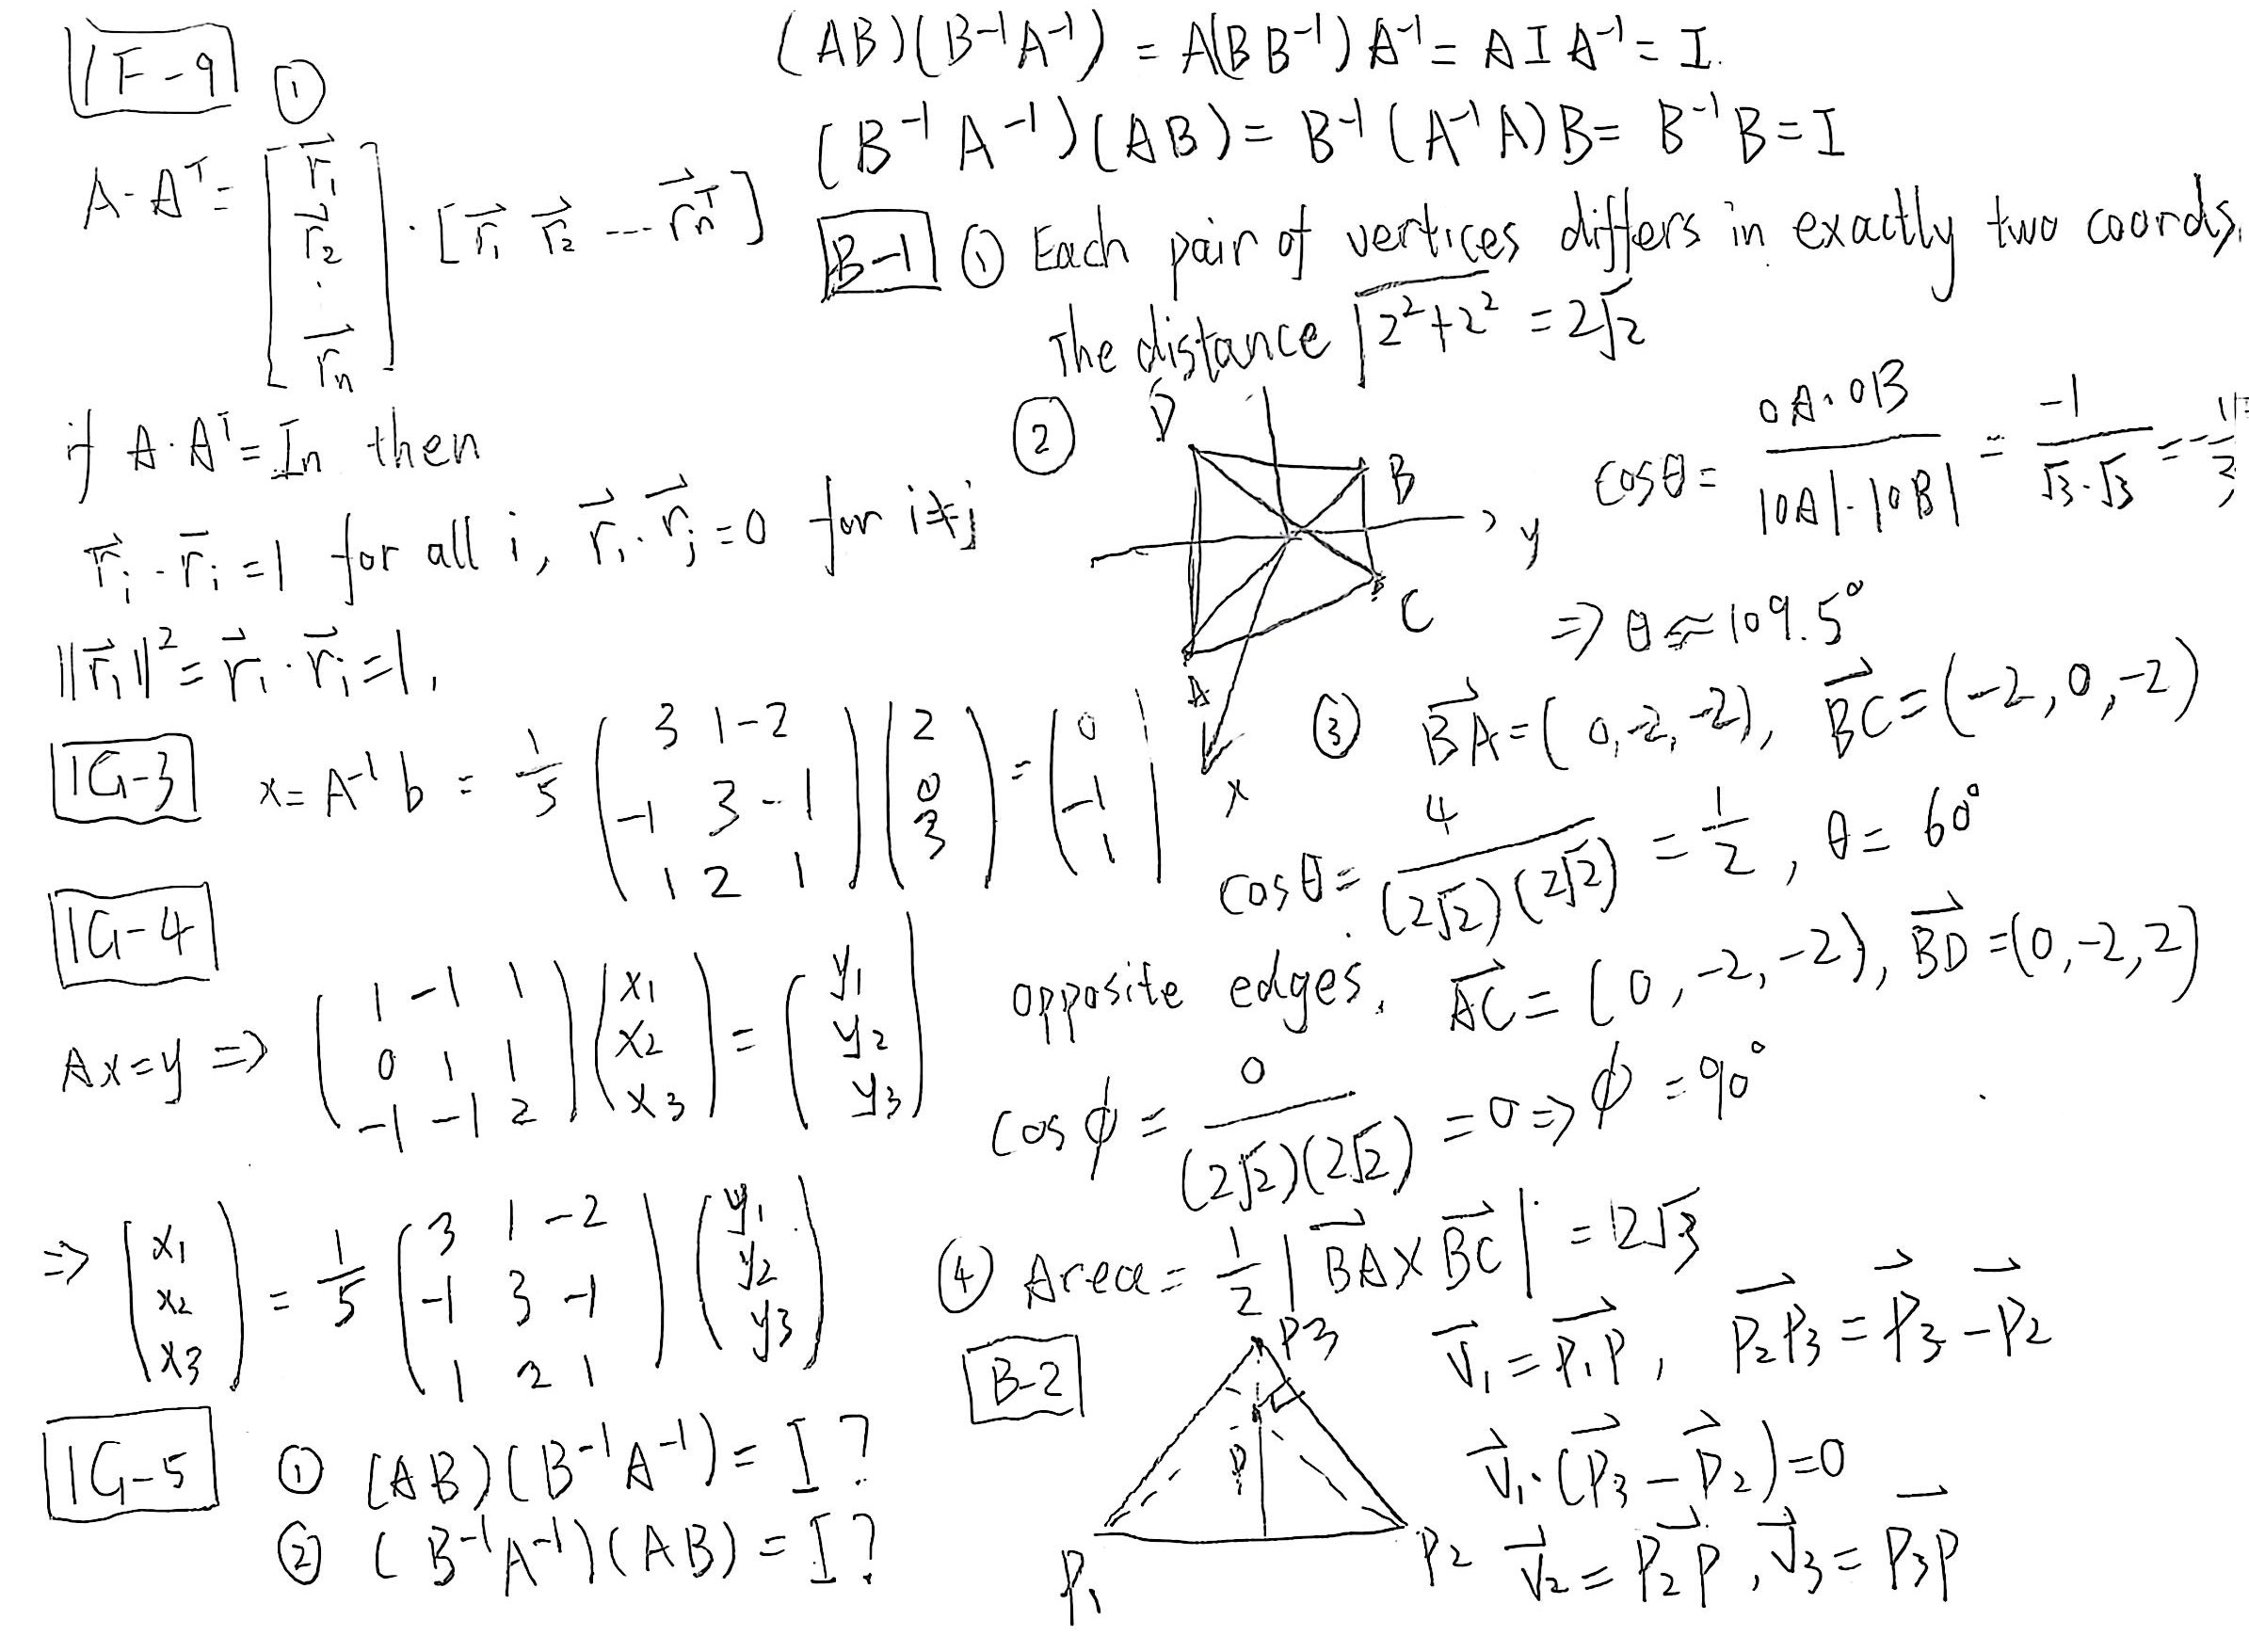 1F-9 ①
A·Aᵀ = [r⃗₁ r⃗₂ ⋮ r⃗ₙ] · [r⃗₁ r⃗₂ --- r⃗ₙᵀ]
if A·Aᵀ = In then
r⃗ᵢ·r⃗ᵢ = 1 for all i, r⃗ᵢ·r⃗ⱼ = 0 for i≠j
||r⃗ᵢ||² = r⃗ᵢ·r⃗ᵢ = 1,
1G-3 x = A⁻¹b = 1/5 (3 1 -2; -1 3 -1; 1 2 1)(2; 0; 3) = (0; -1; 1)
1G-4
Ax=y ⇒ (1 -1 1; 0 1 1; -1 -1 2)(x₁; x₂; x₃) = (y₁; y₂; y₃)
⇒ (x₁; x₂; x₃) = 1/5 (3 1 -2; -1 3 -1; 1 2 1)(y₁; y₂; y₃)
1G-5 ① (AB)(B⁻¹A⁻¹) = I?
② (B⁻¹A⁻¹)(AB) = I?
(AB)(B⁻¹A⁻¹) = A(BB⁻¹)A⁻¹ = AIA⁻¹ = I.
(B⁻¹A⁻¹)(AB) = B⁻¹(A⁻¹A)B = B⁻¹B = I
B-1 ① Each pair of vertices differs in exactly two coords.
The distance √(2²+2²) = 2√2
②
D
B
C
A
y
x
cosθ = OA·OB / |OA|·|OB| = -1 / √3·√3 = -1/3
⇒ θ ≈ 109.5°
③ BA⃗ = (0,-2,-2), BC⃗ = (-2,0,-2)
cosθ = 4 / (2√2)(2√2) = 1/2, θ = 60°
opposite edges. AC⃗ = (0,-2,-2), BD⃗ = (0,-2,2)
cosϕ = 0 / (2√2)(2√2) = 0 ⇒ ϕ = 90°
④ Area = 1/2 |BA⃗ × BC⃗| = 12√3
B-2
P3
P
P₁
P₂
v⃗₁ = P₁P⃗, P₂P₃⃗ = P⃗₃ - P⃗₂
v⃗₁·(P⃗₃ - P⃗₂) = 0
v⃗₂ = P₂P⃗, v⃗₃ = P₃P⃗